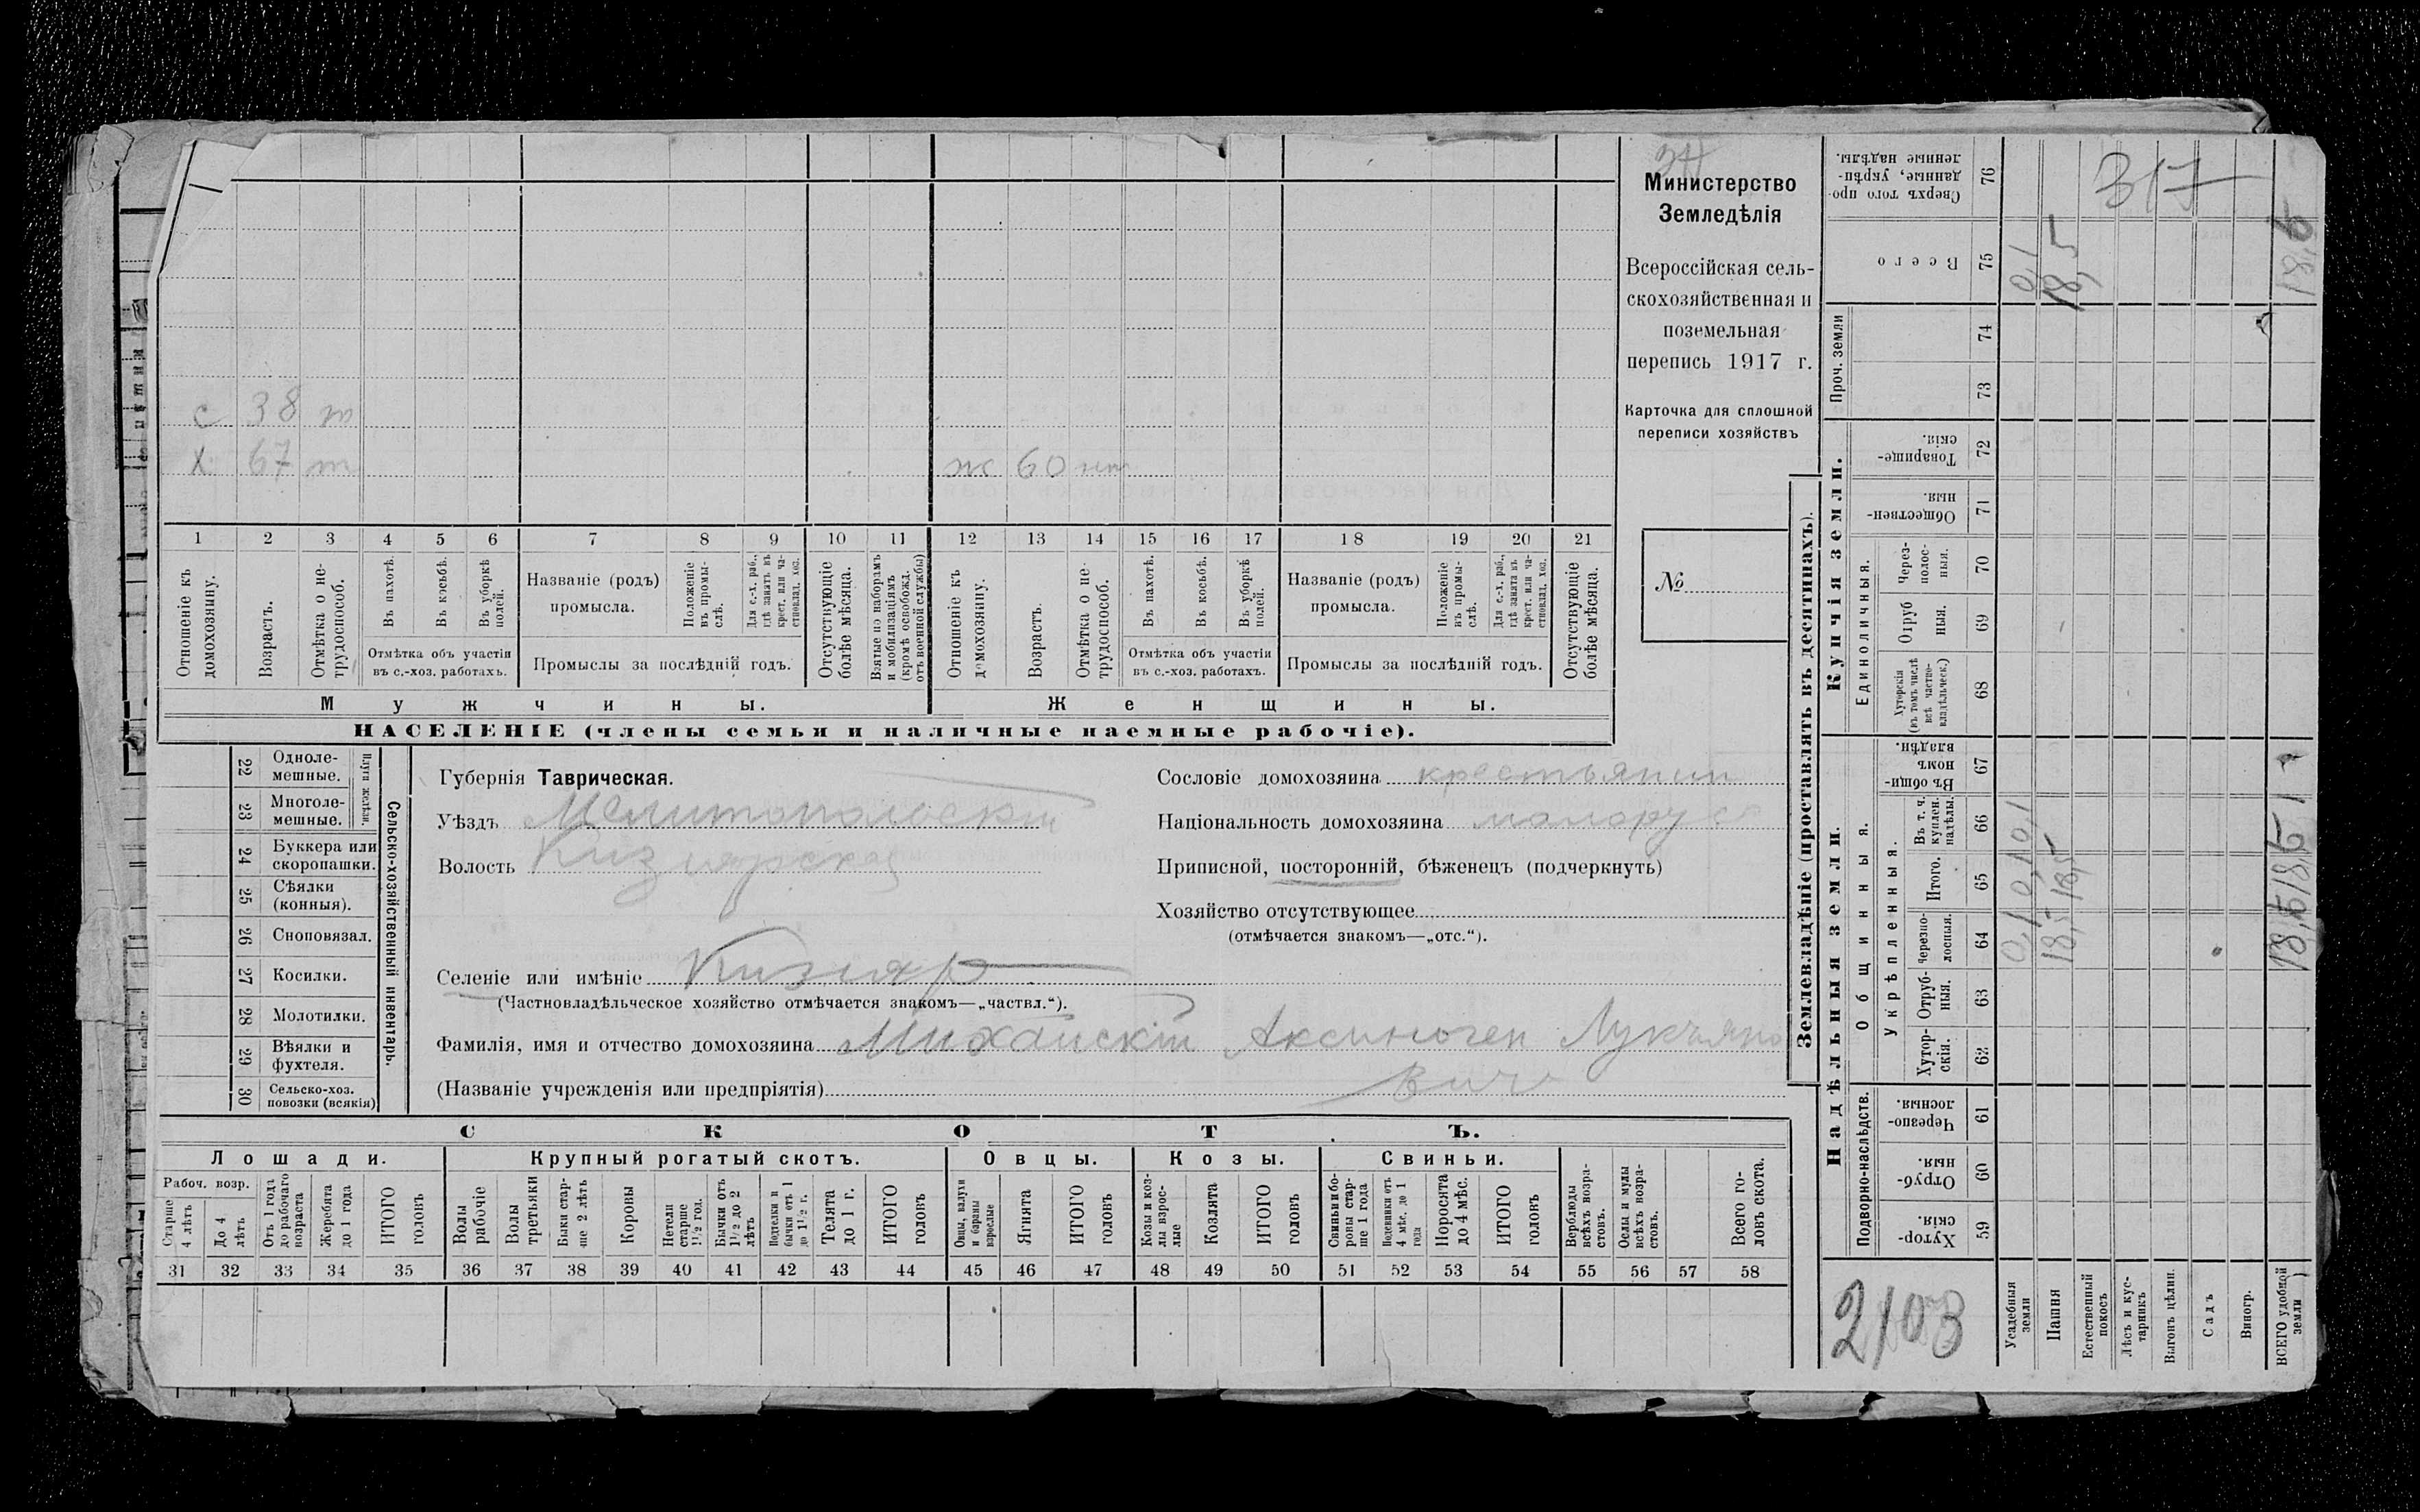 Министерство
Земледѣлія
Всероссійская сель-
скохозяйственная и
поземельная
перепись 1917 г.
Карточка для сплошной
переписи хозяйствъ
№
с 38 т
х 67 т
ж 60 нт
1 2 3 4 5 6 7 8 9 10 11 12 13 14 15 16 17 18 19 20 21
Отношеніе къ домохозяину.
Возрастъ.
Отмѣтка о не-трудоспособ.
Въ пахотѣ.
Въ косьбѣ.
Въ уборкѣ полей.
Отмѣтка объ участіи
въ с.-хоз. работахъ.
Названіе (родъ)
промысла.
Положеніе въ промы-слѣ.
Для с.-х. раб., гдѣ занятъ въ крест. или ча-стновлад. хоз.
Промыслы за послѣдній годъ.
Отсутствующіе болѣе мѣсяца.
Взятые по наборамъ и мобилизаціямъ (кромѣ освобожд. отъ военной службы)
Отношеніе къ домохозяину.
Возрастъ.
Отмѣтка о не-трудоспособ.
Въ пахотѣ.
Въ косьбѣ.
Въ уборкѣ полей.
Отмѣтка объ участіи
въ с.-хоз. работахъ.
Названіе (родъ)
промысла.
Положеніе въ промы-слѣ.
Для с.-х. раб., гдѣ занята въ крест. или ча-стновлад. хоз.
Промыслы за послѣдній годъ.
Отсутствующіе болѣе мѣсяца.
Мужчины.
Женщины.
НАСЕЛЕНІЕ (члены семьи и наличные наемные рабочіе).
22 Одноле-мешные.
23 Многоле-мешные.
Плуги желѣзн.
24 Буккера или скоропашки.
25 Сѣялки (конныя).
26 Сноповязал.
27 Косилки.
28 Молотилки.
29 Вѣялки и фухтеля.
30 Сельско-хоз. повозки (всякія)
Сельско-хозяйственный инвентарь.
Губернія Таврическая.
Уѣздъ Мелитопольскій
Волость Кизіярская
Селеніе или имѣніе Кизіяр
(Частновладѣльческое хозяйство отмѣчается знакомъ—„частвл.“).
Фамилія, имя и отчество домохозяина Лукьяно
вич
(Названіе учрежденія или предпріятія)
Сословіе домохозяина крестьянин
Національность домохозяина малорус
Приписной, посторонній, бѣженецъ (подчеркнуть)
Хозяйство отсутствующее
(отмѣчается знакомъ—„отс.“).
СКОТЪ.
Лошади. Крупный рогатый скотъ. Овцы. Козы. Свиньи.
Рабоч. возр.
Старше 4 лѣтъ
До 4 лѣтъ
Отъ 1 года до рабочаго возраста
Жеребята до 1 года
ИТОГО головъ
Волы рабочіе
Волы третьяки
Быки стар-ше 2 лѣтъ
Коровы
Нетели старше 1½ год.
Бычки отъ 1½ до 2 лѣтъ
Подтелки и бычки отъ 1 до 1½ г.
Телята до 1 г.
ИТОГО головъ
Овцы, валухи и бараны взрослые
Ягнята
ИТОГО головъ
Козы и коз-лы взрос-лые
Козлята
ИТОГО головъ
Свиньи и бо-ровы стар-ше 1 года
Подсвинки отъ 4 мѣс. до 1 года
Поросята до 4 мѣс.
ИТОГО головъ
Верблюды всѣхъ возра-стовъ.
Ослы и мулы всѣхъ возра-стовъ.
Всего го-ловъ скота.
31 32 33 34 35 36 37 38 39 40 41 42 43 44 45 46 47 48 49 50 51 52 53 54 55 56 57 58
Землевладѣніе (проставлять въ десятинахъ).
Надѣльныя земли.
Купчія земли.
Проч. земли
Подворно-наслѣдств.
Общинныя.
Укрѣпленныя.
Единоличныя.
76 Сверхъ того про-данные, укрѣп-ленные надѣлы.
75 Всего
74
73
72 Товарище-скія.
71 Обществен-ныя.
70 Через-полос-ныя.
69 Отруб ныя.
68 Хуторскія (въ томъ числѣ всѣ частно-владѣльческ.)
67 Въ общин-номъ владѣн.
66 Въ т. ч. куплен. надѣлы.
65 Итого.
64 Черезпо-лосныя.
63 Отруб-ныя.
62 Хутор-скія.
61 Черезпо-лосныя.
60 Отруб-ныя.
59 Хутор-скія.
Усадебныя земли
0,1 0,1 0,1 0,1
Пашня
18,5 18,5 18,5
Естественный покосъ
Лѣсъ и кус-тарникъ
Выгонъ цѣлин.
Садъ
Виногр.
ВСЕГО удобной земли
18,6 18,6 18,6
317
2103